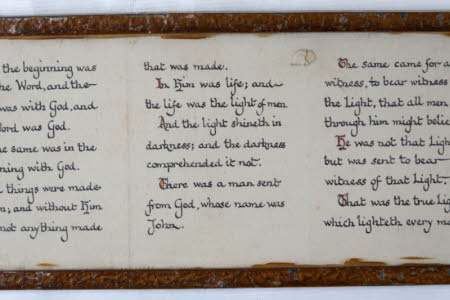 the beginning was
the Word, and the
was with God, and
Word was God.
he same was in the
ning with God.
things were made
m; and without Him
not anything made
that was made.
In Him was life; and
the life was the light of men
And the light shineth in
darkness; and the darkness
comprehended it not.
There was a man sent
from God, whose name was
John.
The same came for a
witness, to bear witness
the Light, that all men
through him might belie
He was not that Ligh
but was sent to bear
witness of that Light.
That was the true Lig
which lighteth every ma